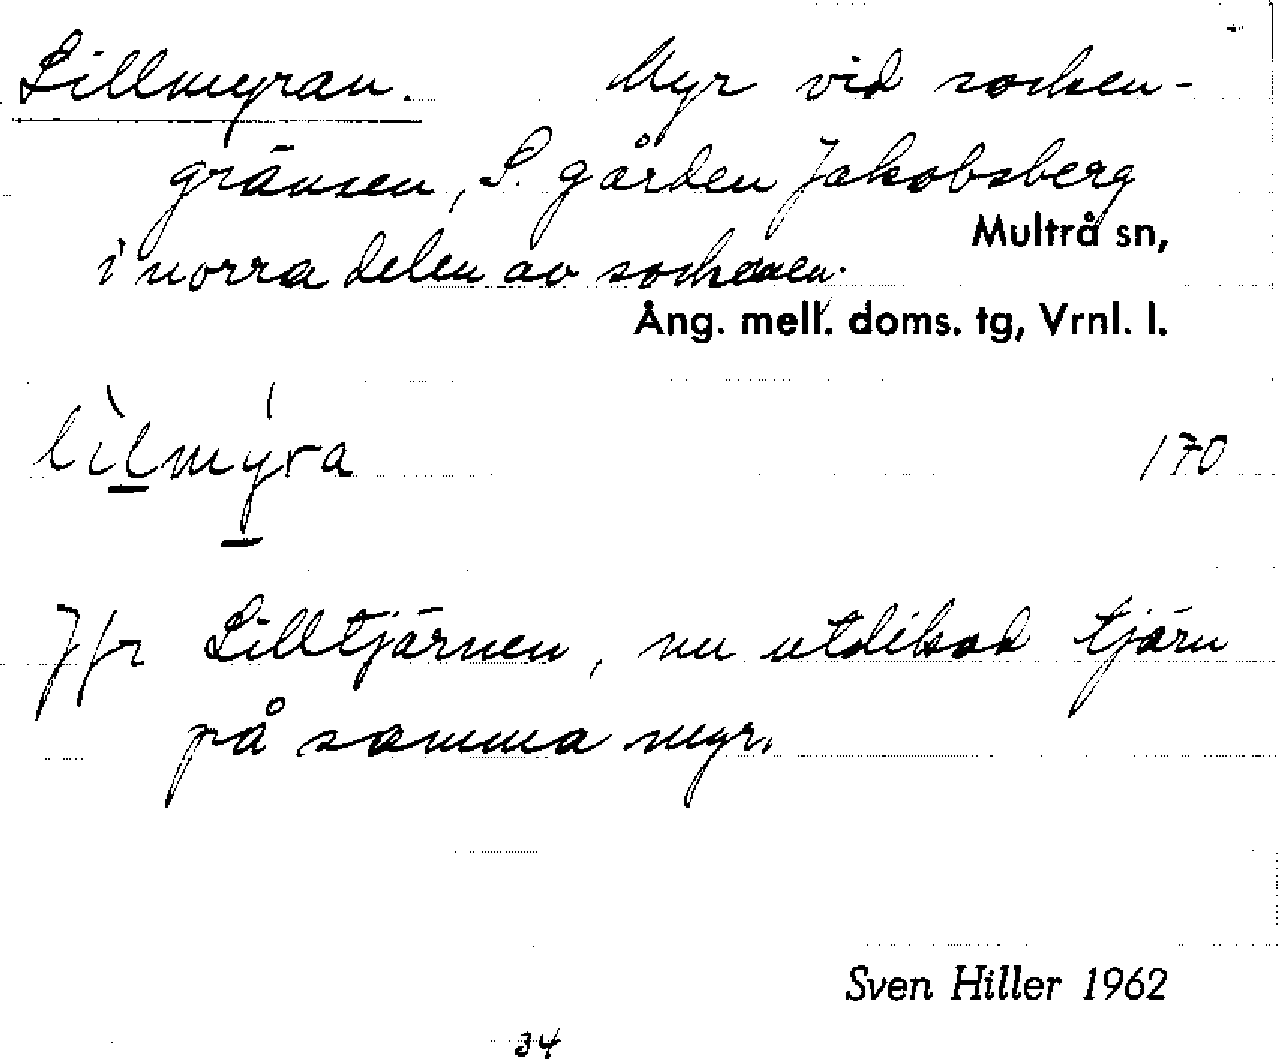 Lillmyran. Myr vid socken-
gränsen, S. gården Jakobsberg
Multrå sn,
i norra delen av socknen.
Ång. mell. doms. tg, Vrnl. l.
lìlmýra 170
Jfr Lilltjärnen, nu utdikad tjärn
på samma myr.
Sven Hiller 1962
34